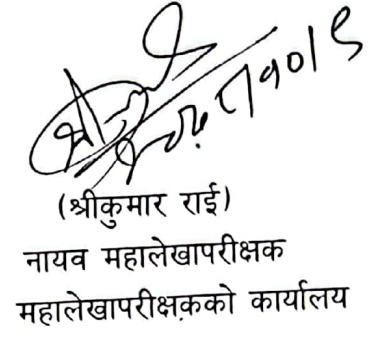 (श्रीकुमार राई)
नायव महालेखापरीक्षक
महालेखापरीक्षकको कार्यालय